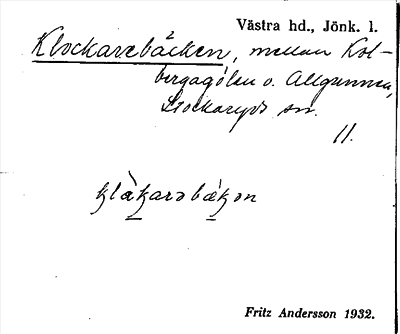 Västra hd., Jönk. l.
Klockarebäcken, mellan Kol-
bergagölen o. Allgunnen,
Stockaryds sn.
11.
Fritz Andersson 1932.